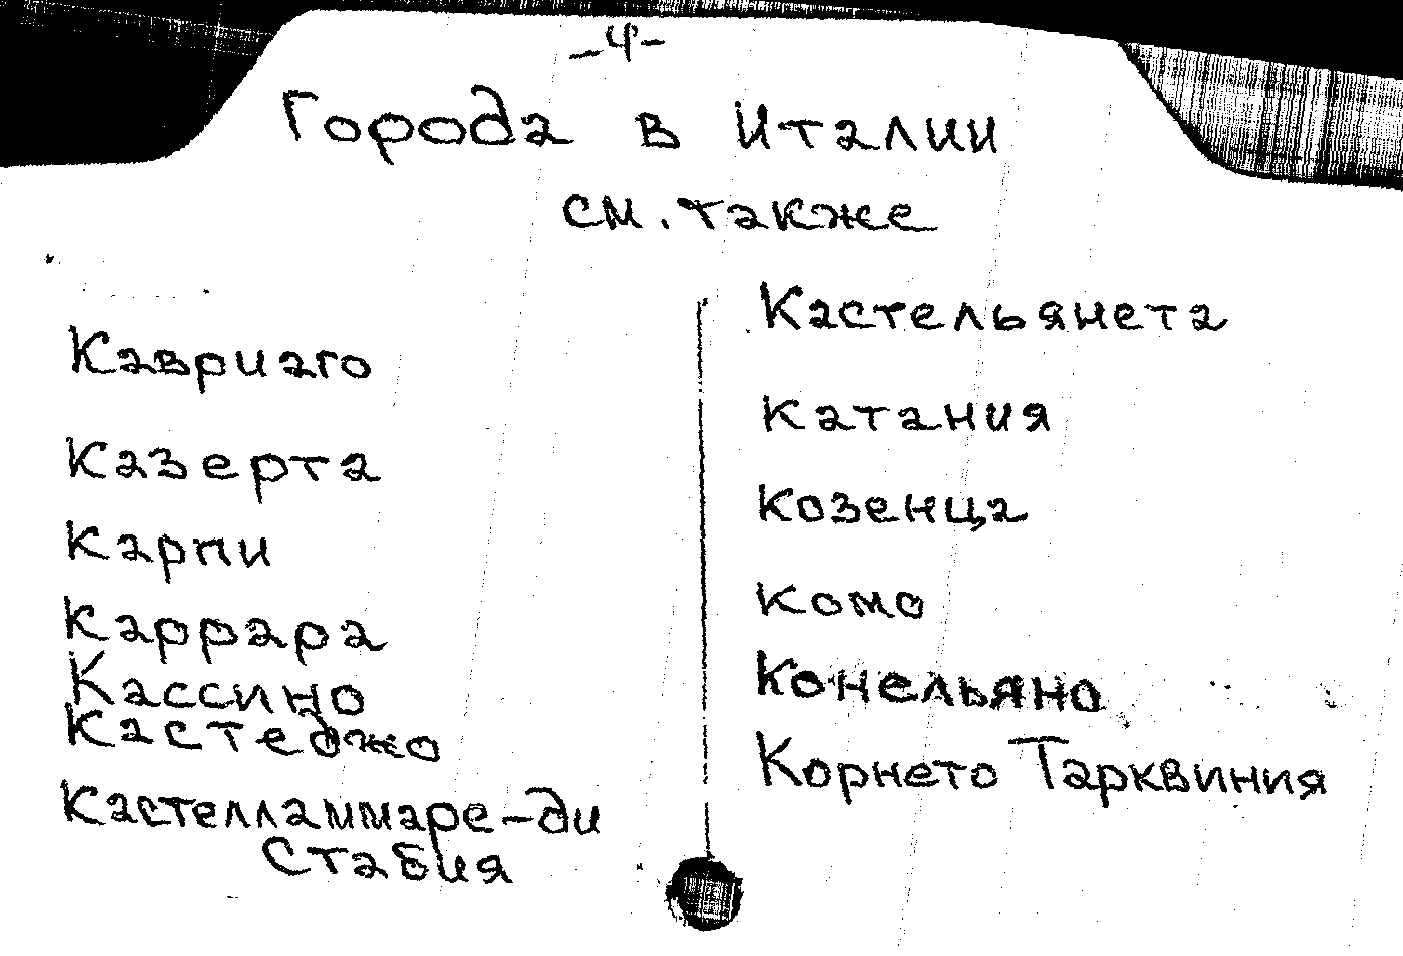 -4-
Города в Италии
см. также
Кавриаго
Казерта
Карпи
Каррара
Кассино
Кастеджо
Кастелламмаре-ди
Стабия
Кастельянета
Катания
Козенца
Комо
Конельяно
Корнето Тарквиния